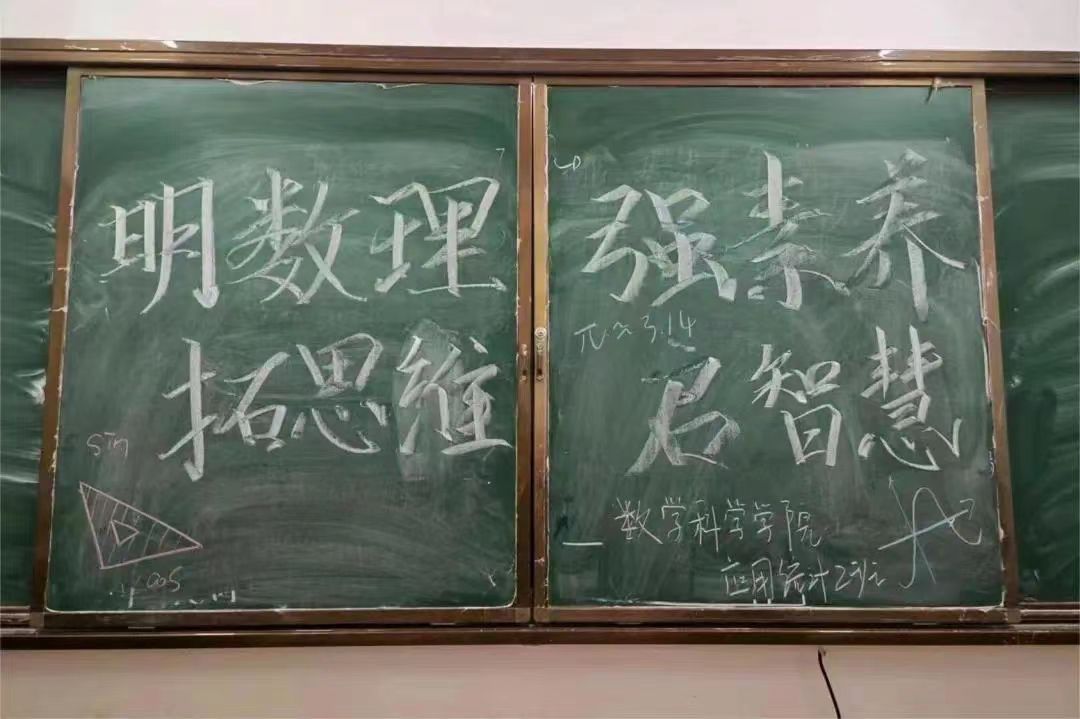 明数理
拓思维
sin
cos
强素养
π≈3.14
启智慧
数学科学学院
应用统计2班